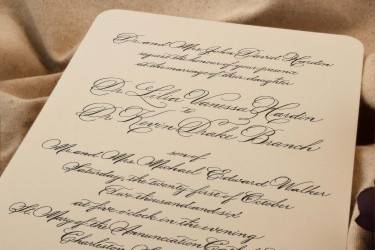 Dr. and Mrs. John David Hardin
request the honour of your presence
at the marriage of their daughter
Dr. Lilia Vanessa Hardin
to
Dr. Kevin Drake Branch
son of
Mr. and Mrs. Michael Edward Walker
Saturday, the twenty first of October
Two thousand and six
at five o'clock in the evening
St. Mary of the Annunciation
Charleston, S